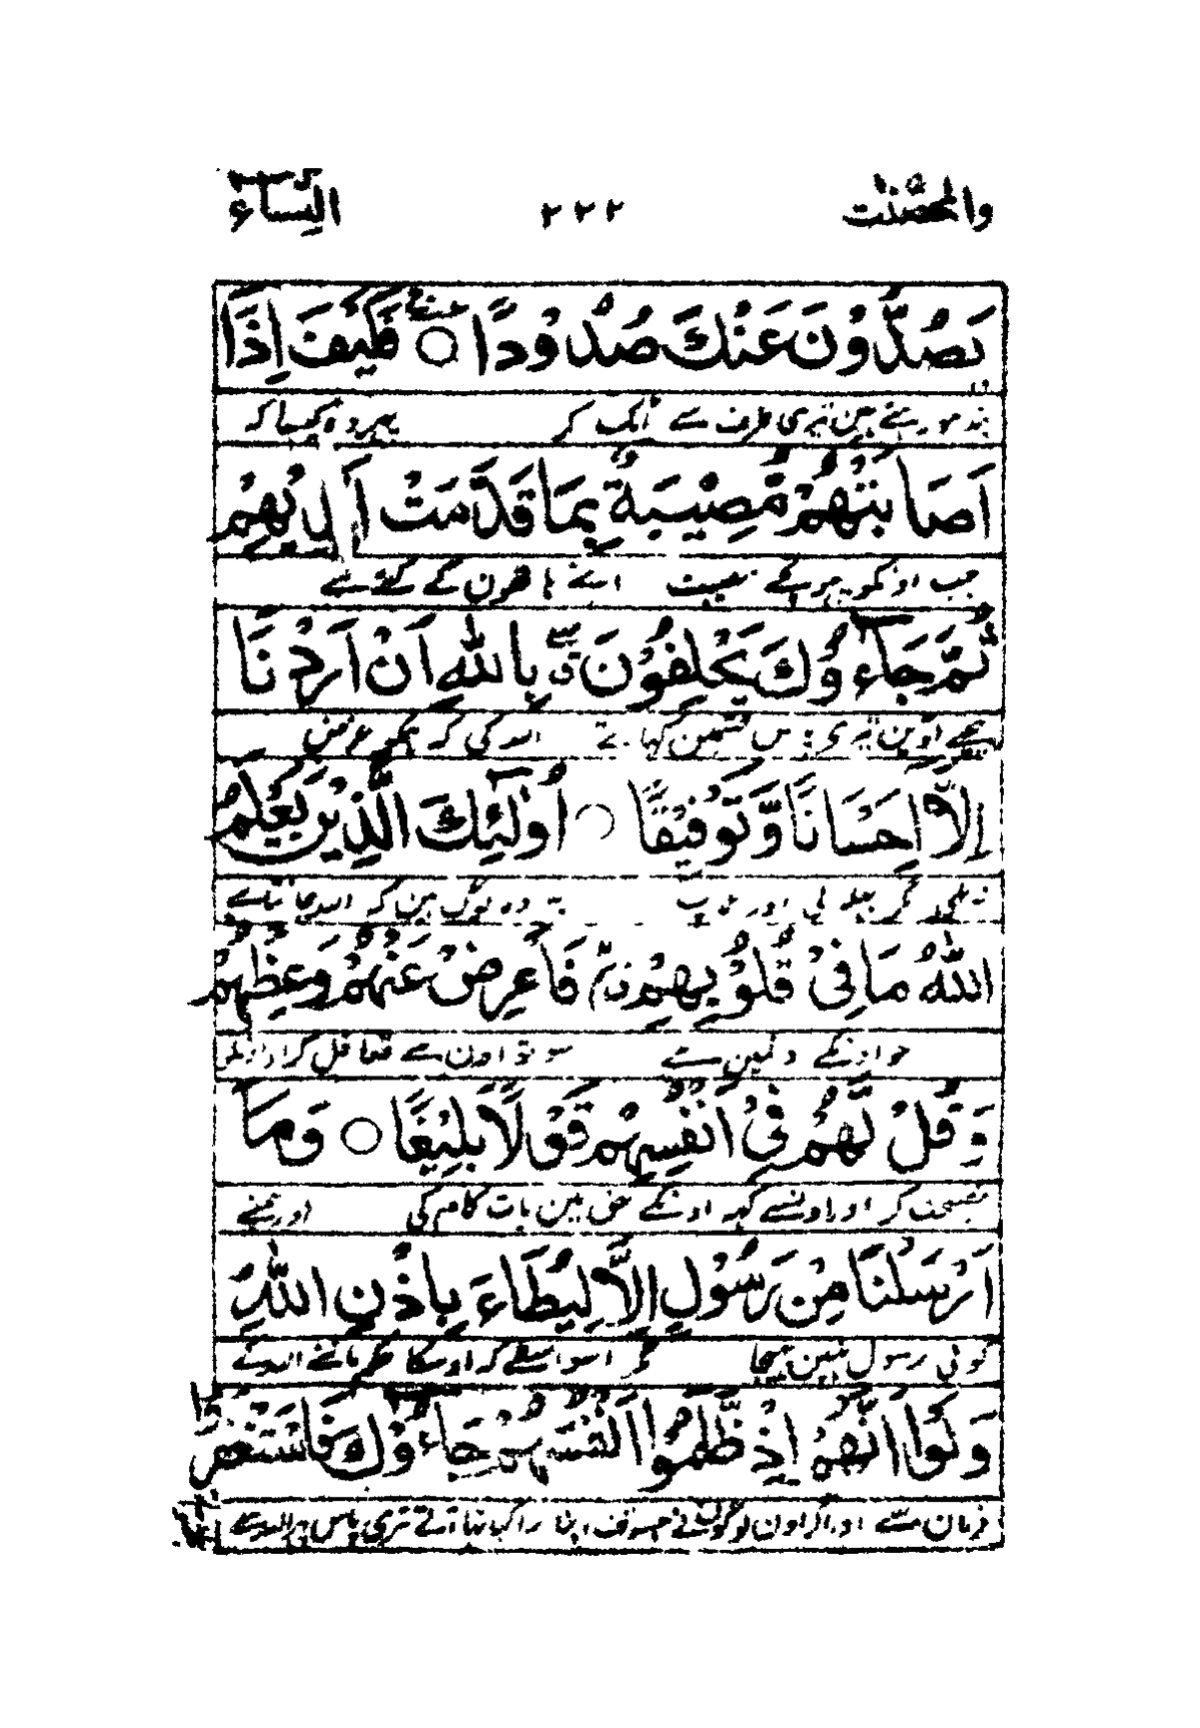 والمحصنت ۲۲۲ النساء
يَصُدُّوْنَ عَنْكَ صُدُوْدًا ○ فَكَيْفَ اِذَا
بند ہو رہتے ہین تیری طرف سے اٹک کر پھر وہ کیسا کہ
اَصَابَتْهُمْ مُّصِيْبَةٌۢ بِمَا قَدَّمَتْ اَيْدِيْهِمْ
جب اونکو پہونچے مصیبت اپنے ہاتھون کے کئے سے
ثُمَّ جَآءُوْكَ يَحْلِفُوْنَ ۖ بِاللّٰهِ اِنْ اَرَدْنَا
پیچھے آوین تیری پاس قسمین کہاتے اللہ کی کہ ہمکو غرض
اِلَّآ اِحْسَانًا وَّتَوْفِيْقًا ○ اُولٰٓئِكَ الَّذِيْنَ يَعْلَمُ
نہ تھی مگر بھلائی اور ملاپ یہ وہ لوگ ہین کہ اللہ جانتا ہے
اللّٰهُ مَا فِيْ قُلُوْبِهِمْ فَاَعْرِضْ عَنْهُمْ وَعِظْهُمْ
جو اونکے دلمین ہے سو تو اون سے تغافل کر اور اونکو
وَقُلْ لَّهُمْ فِيْٓ اَنْفُسِهِمْ قَوْلًا بَلِيْغًا ○ وَمَآ
نصیحت کر اور اونسے کہہ اونکے حق مین بات کام کی اور ہمنے
اَرْسَلْنَا مِنْ رَّسُوْلٍ اِلَّا لِيُطَاعَ بِاِذْنِ اللّٰهِ
کوئی رسول نہین بھیجا مگر اسواسطے کہ اوسکا حکم مانئے اللہ کے
وَلَوْ اَنَّهُمْ اِذْ ظَّلَمُوْٓا اَنْفُسَهُمْ جَآءُوْكَ فَاسْتَغْفَرُوا
فرمان سے اور اگر اون لوگون نے جسوقت اپنا برا کیا تھا آتے تیری پاس پھر اللہ سے